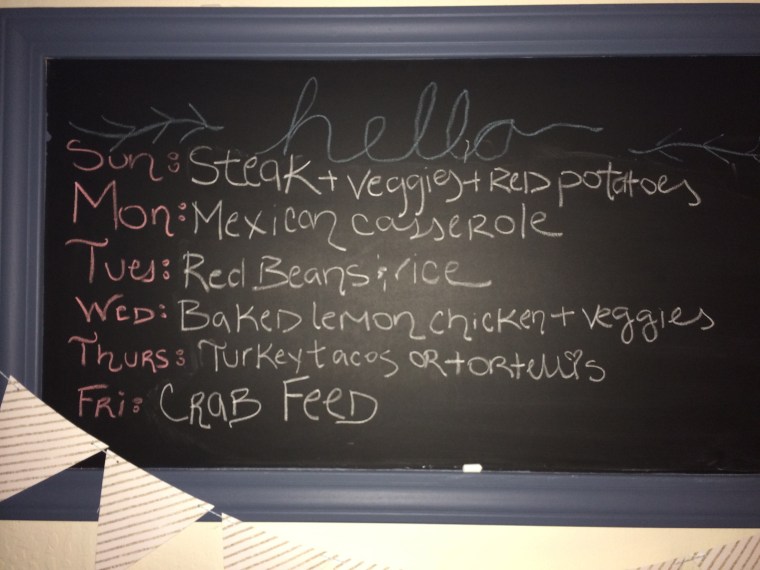 hello
Sun: Steak + veggies + Red potatoes
Mon: Mexican casserole
Tues: Red Beans & rice
Wed: Baked lemon chicken + veggies
Thurs: Turkey tacos or tortellis
Fri: Crab Feed